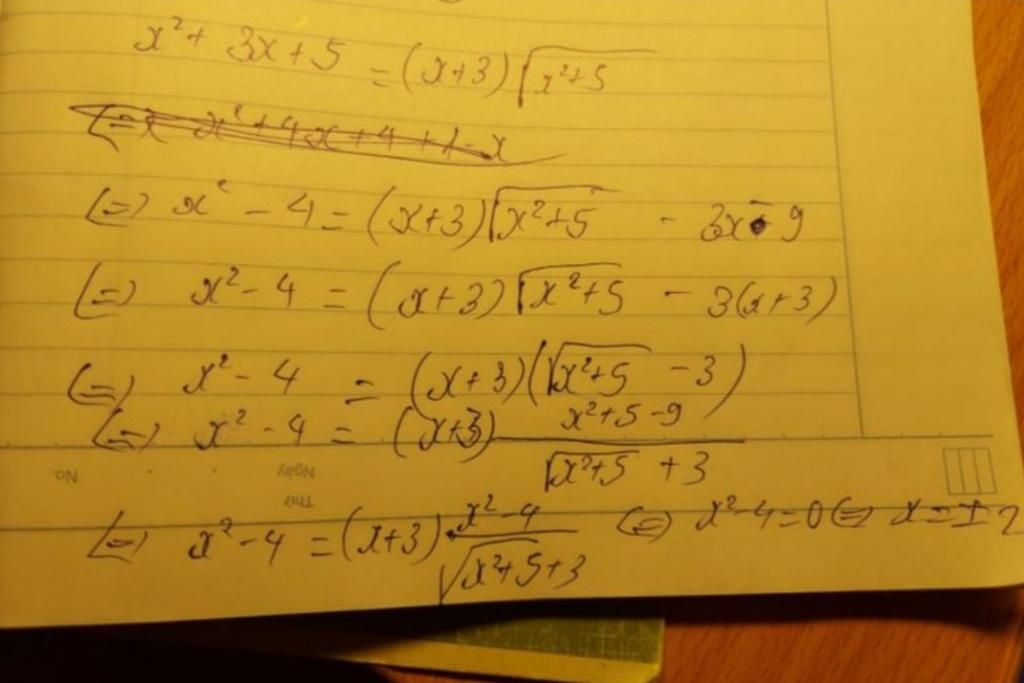 x² + 3x + 5 = (x+3) √(x²+5)
(=) x² + 4x + 4 + 1 - x
(=) x² - 4 = (x+3) √(x²+5) - 3x - 9
(=) x² - 4 = (x+3) √(x²+5) - 3(x+3)
(=) x² - 4 = (x+3)(√(x²+5) - 3)
(=) x² - 4 = (x+3) (x²+5-9)/(√(x²+5) + 3)
No. Ngày
Thứ
(=) x² - 4 = (x+3) · (x²-4)/(√(x²+5) + 3) (=) x² - 4 = 0 (=) x = ± 2